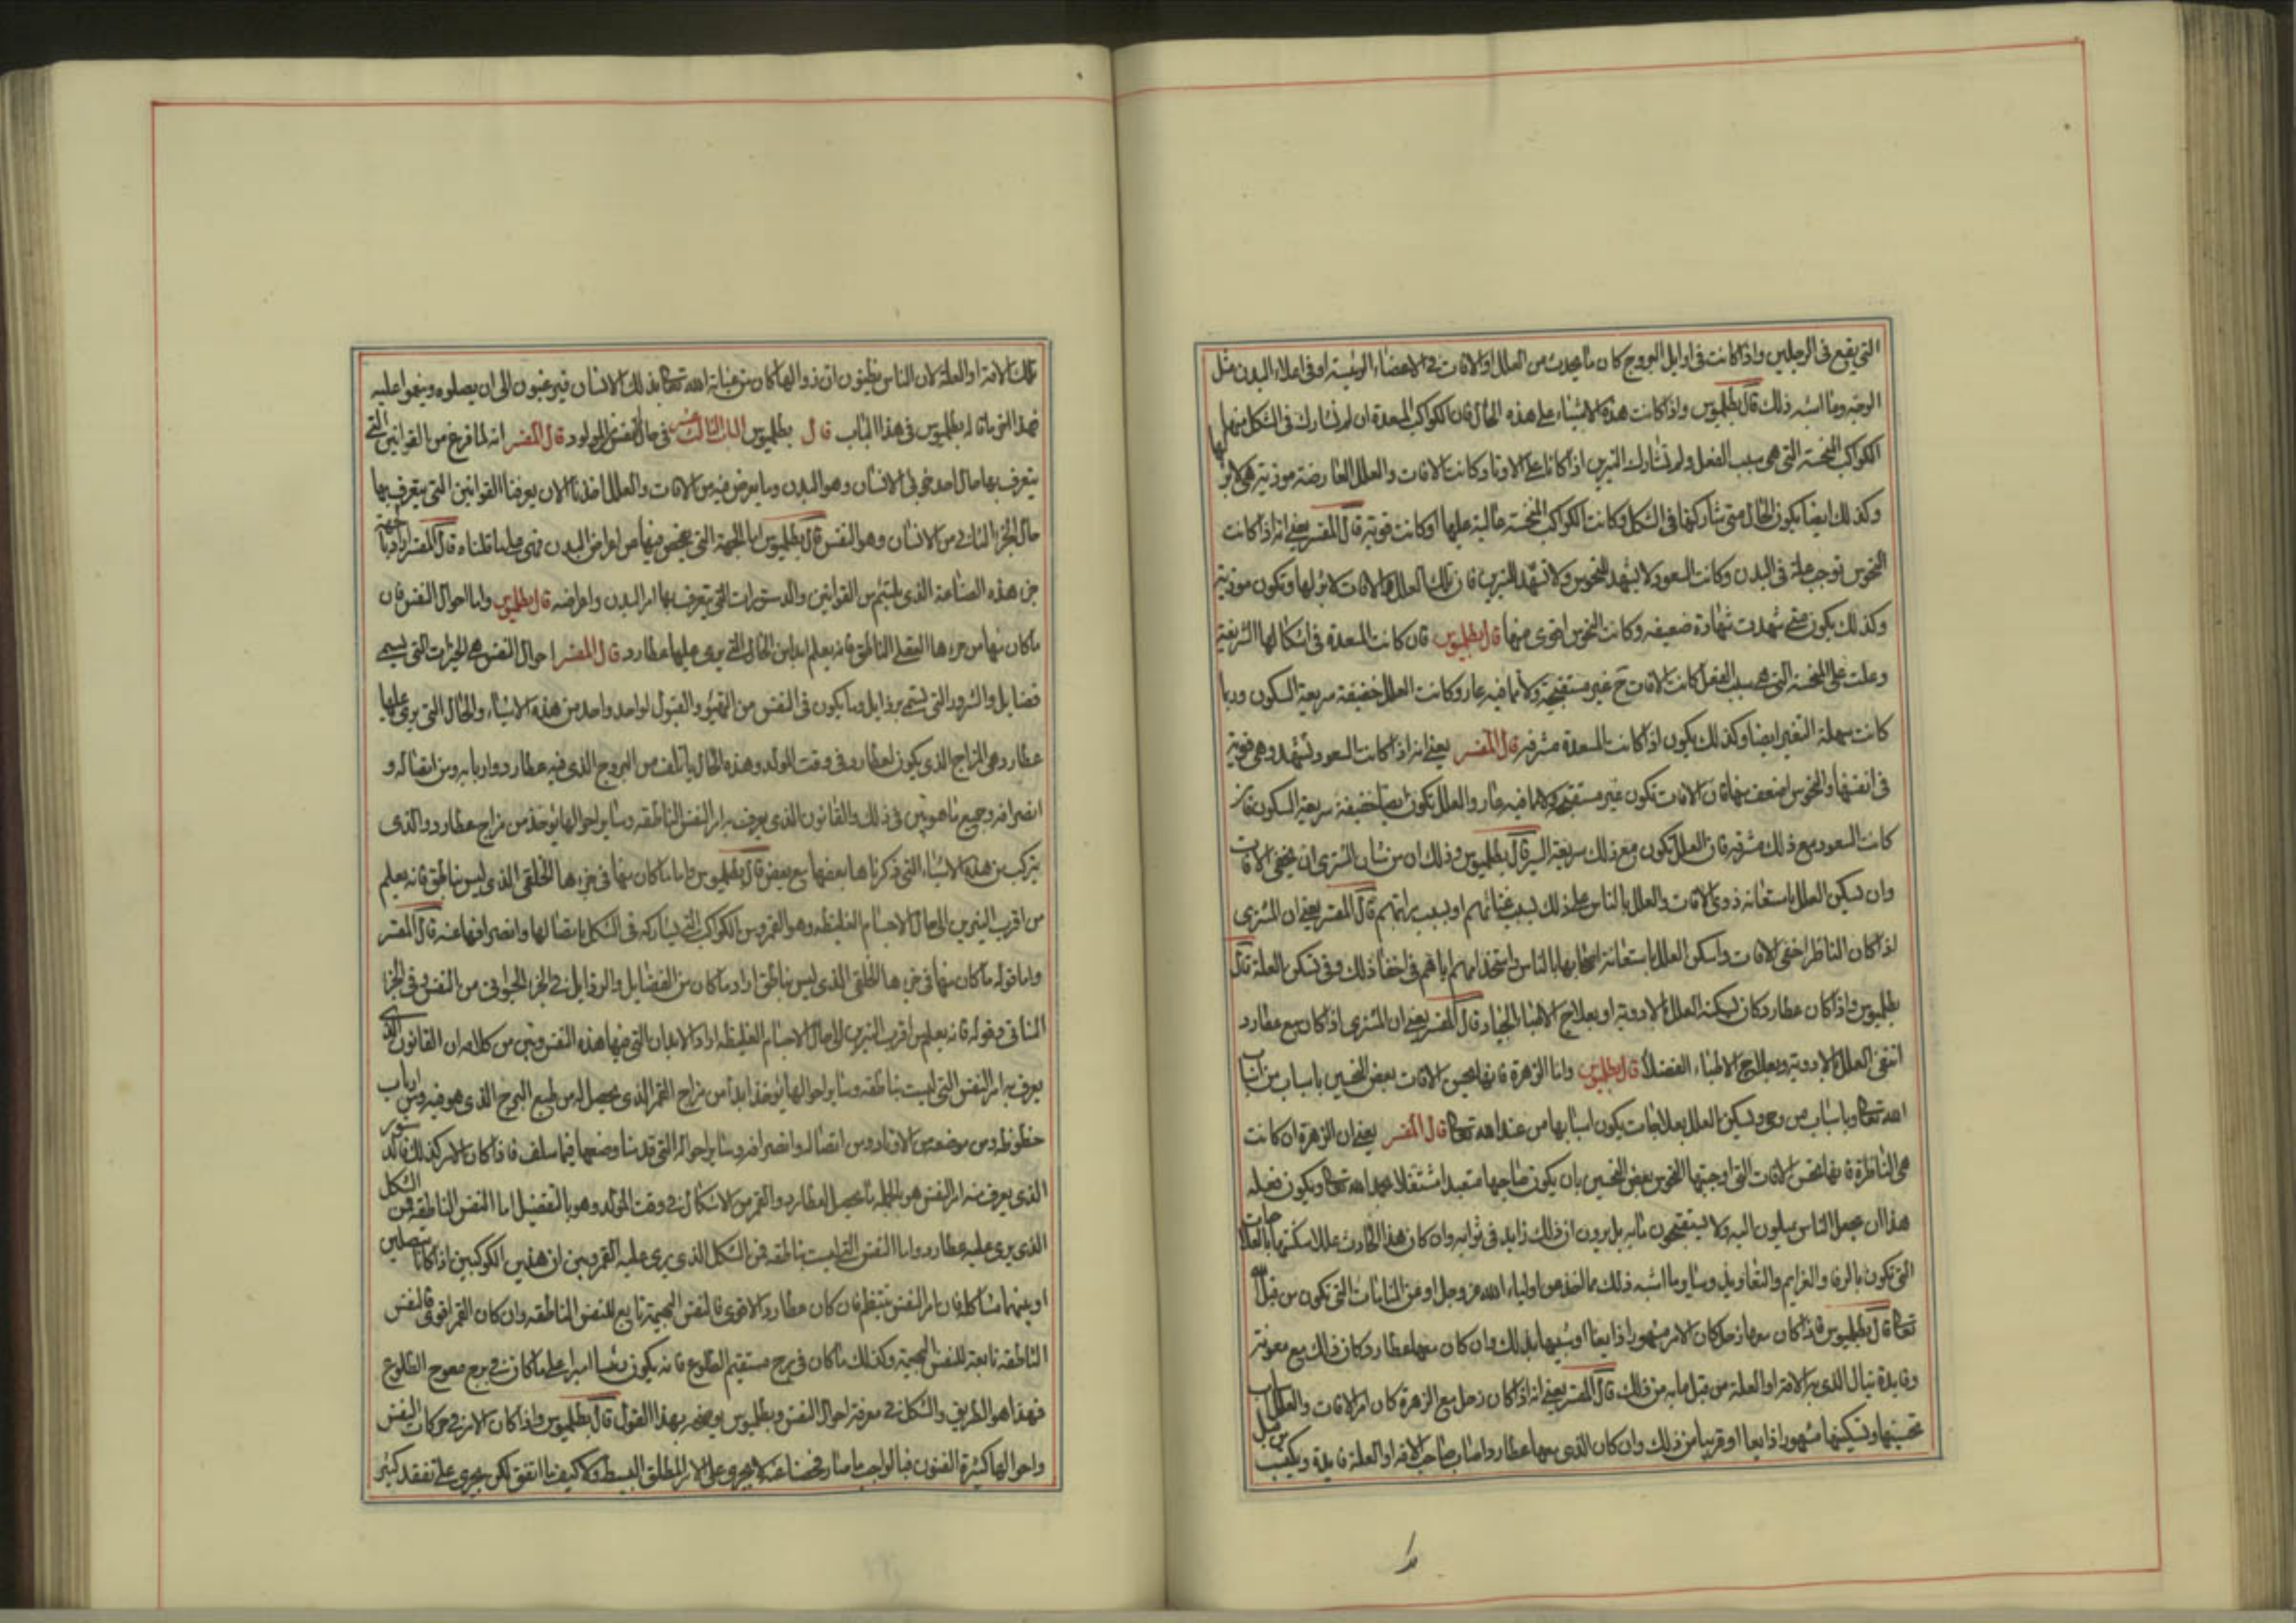 التي يقع في الرجلين واذا كانت في اوايل البروج كان ما يحدث من العلل او الافات في الاعضاء الرئيسة او في اعلاء البدن مثل
الوجه وما اشبه ذلك قال بطلميوس واذا كانت هذه الاشياء على هذه الحال فان الكواكب المسعدة ان لم تشارك في الشكل
الكواكب المنحسة التي هي سبب الفعل ولم تشارك النيرين اذا كانا على الاوتاد كانت الافات والعلل العارضة موذية لا برؤ لها
وكذلك ايضا يكون الحال متى شاركتها في الشكل وكانت الكواكب المنحسة عالية عليها او كانت قوية قال المفسر يعني انه اذا كانت
النحوس توجب علة في البدن وكانت السعود لا يشهد للنحوس ولا تشهد للنيرين فان تلك العلل والافات لا برؤ لها وتكون موذية
وكذلك يكون متى شهدت شهادة ضعيفه وكانت النحوس اقوى منها قال بطلميوس فان كانت المسعدة في اشكالها الشريفة
وعلت على المنحسة التي هي سبب الفعل كانت الافات ح غير مستقبحة ولا مما فيه عار وكانت العلل خفيفة سريعة السكون وربما
كانت سهلة التغير ايضا وكذلك يكون اذا كانت المسعدة مشرقية قال المفسر يعني انه اذا كانت السعود تشهد وهي قوية
في انفسها والنحوس اضعف منها فان الافات تكون غير مستقبحة ولا مما فيه عار والعلل تكون ايضا خفيفة سريعة السكون فان
كانت السعود مع ذلك مشرقية فان العلل تكون مع ذلك سريعة السير قال بطلميوس وذلك ان من شان المشتري ان يخفى الافات
وان تسكن العلل باستعانة ذوي الافات والعلل بالناس على ذلك بسبب غنائهم او بسبب مراتبهم قال المفسر يعني ان المشتري
اذا كان الناظر اخفى الافات واسكن العلل باستعانة اصحابها بالناس واستخدامهم اياهم في اخفا ذلك وفي تسكن العلة قال
بطلميوس واذا كان عطارد كان تسكينه العلل بالادوية او بعلاج الاطباء الجياد قال المفسر يعني ان المشتري اذا كان مع عطارد
انتفى العلل بالادوية وبعلاج الاطباء الفضلا قال بطلميوس واما الزهرة فانها تحسن الافات بعض التحسين باسباب من اسباب
الله تعالى وباسباب من وحي وتسكن العلل بعلاجات يكون اسبابها من عند الله تعالى قال المفسر يعني ان الزهرة ان كانت
هي الناظرة فانها تحسن الافات التي اوجبتها النحوس بعض التحسين بان يكون صاحبها متعبدا مشتغلا بعبادة الله تعالى ويكون فعله
هذا ان يجعل الناس يميلون اليه ولا يستقبحون ما به بل يرون ان ذلك زايد في ثوابه وان كان هذا الحادث عللا سكنتها بالعلاجات
التي تكون بالرقا والعزايم والتعاويذ وساير ما اشبه ذلك مما اخذ من اولياء الله عز وجل او من المنامات التي تكون من قبل الله
تعالى قال بطلميوس فاذا كان معها زحل كان الامر مشهورا ذايعا او شبيها بذلك وان كان معها عطارد كان ذلك مع معونة
وفايدة ينال الذي به الافة او العلة من قبل ما به من ذلك قال المفسر يعني انه اذا كان زحل مع الزهرة كان امر الافات والعلل
تحسينها وتسكينها مشهورا ذايعا او قريبا من ذلك وان كان الذي معها عطارد اصاب صاحب الافة او العلة فايدة ويكسب من قبل
تلك الافة او العلة لان الناس يظنون ان زوالها كان من عناية الله تعالى بذلك الانسان فيرغبون الى ان يصلوه وينعموا عليه
فهذا الذي ما قاله بطلميوس في هذا الباب قال بطلميوس الباب الثالث عشر في حال النفس المولود قال المفسر انه لما فرغ من القوانين التي
يتعرف بها حال احد جزءي الانسان وهو البدن وما يعرض فيه من الافات والعلل اخذنا الان يعرفنا القوانين التي يتعرف بها
حال الجزء الثاني من الانسان وهو النفس قال بطلميوس اما الجهة التي يفحص منها عن اعراض البدن فهي على ما قلناه قال المفسر اراد بالجهة
جزء هذه الصناعة الذي يلتئم من القوانين والدستورات التي يتعرف بها امر البدن واعراضه قال بطلميوس واما احوال النفس فان
ما كان منها من جزءها العقلي الناطق فانه يعلم ابدا من الحال التي يرى عليها عطارد قال المفسر احوال النفس هي الخيرات التي تسمى
فضايل والشرور التي تسمى رذايل وما يكون في النفس من التهيؤ والقبول لواحد واحد من هذه الاشياء والحال التي يرى عليها
عطارد هي المزاج الذي يكون لعطارد في وقت المولد وهذه الحال ياتلف من البروج الذي فيه عطارد واربابه ومن اتصاله و
انصرافه وجميع ما هو بين في ذلك والقانون الذي يعرف به امر النفس الناطقه وساير احوالها يوخذ من مزاج عطارد والذي
يتركب من هذه الاشياء التي ذكرناها بعضها مع بعض قال بطلميوس واما ما كان منها في جزءها الخلقي الذي ليس بناطق فانه يعلم
من اقرب النيرين الى حال الاجسام الغليظه وهو القمر ومن الكواكب التي تشاركه في الشكل باتصالها وانصرافها عنه قال المفسر
واما قوله ما كان منها في جزءها الخلقي الذي ليس بناطق اراد ما كان من الفضايل والرذايل في الجزء الحيواني من النفس وفي الجزء
النباتي وقوله فانه يعلم من اقرب النيرين الى حال الاجسام الغليظه اراد الابدان التي فيها هذه النفس وبين من كلامه ان القانون الذي
يعرف به امر النفس التي ليست بناطقه وساير احوالها يوخذ ابدا من مزاج القمر الذي يحصل له من طبع البرج الذي هو فيه ومن ارباب
حظوظه ومن موضعه من الاوتاد ومن اتصاله وانصرافه وساير احواله التي قدمنا وصفها فيما سلف فاذا كان الامر كذلك فالدستور
الذي يعرف منه امر النفس هو بالجمله ما يحصل لعطارد والقمر من الاشكال في وقت المولد وهو بالتفضيل اما النفس الناطقه فمن الشكل
الذي يرى عليه عطارد واما النفس التي ليست بناطقه فمن الشكل الذي يرى عليه القمر وبين ان هذين الكوكبين اذا كانا متصلين
او بينهما مشاكله فان امر النفس ينتظم فان كان عطارد الاقوى فالنفس البهيمية تابع للنفس الناطقه وان كان القمر اقوى فالنفس
الناطقه تابعة للنفس البهيمية وكذلك ما كان في برج مستقيم الطلوع فانه يكون رئيسا اميرا على ما كان في برج معوج الطلوع
فهذا هو الطريق والشكل في معرفة احوال النفس وبطلميوس يوضحه بهذا القول قال بطلميوس واذا كان الامر في حركات النفس
واحوالها كثيرة الفنون فبالواجب ما صار فحصنا عنه لا يجري على الامر المطلق البسيط ولا كيف ما اتفق لكن يجري على تفقد كثير